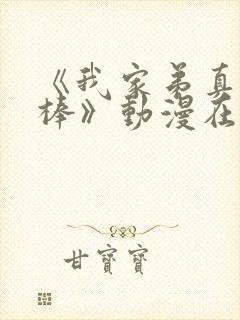 《我家弟真
棒》動漫在
甘寶寶